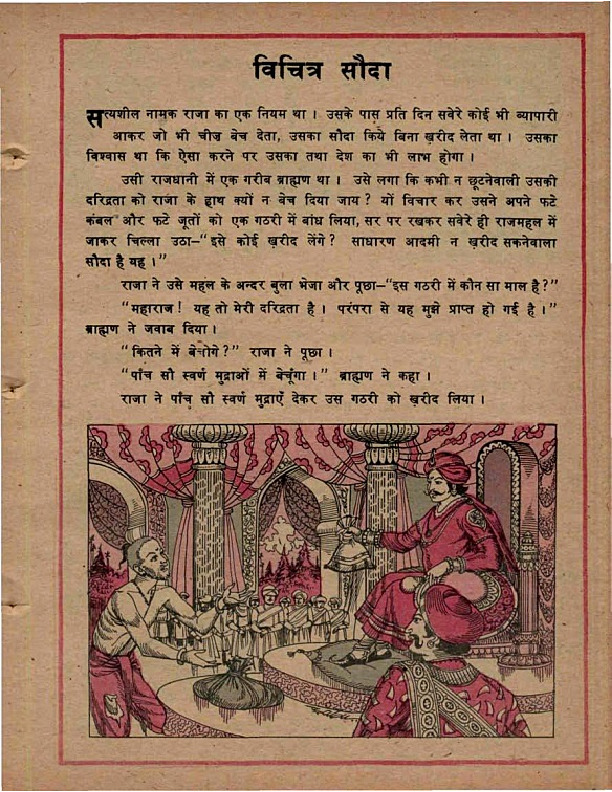 विचित्र सौदा
सत्यशील नामक राजा का एक नियम था। उसके पास प्रति दिन सवेरे कोई भी व्यापारी
आकर जो भी चीज़ बेच देता, उसका सौदा किये बिना ख़रीद लेता था। उसका
विश्वास था कि ऐसा करने पर उसका तथा देश का भी लाभ होगा।
उसी राजधानी में एक गरीब ब्राह्मण था। उसे लगा कि कभी न छूटनेवाली उसकी
दरिद्रता को राजा के हाथ क्यों न बेच दिया जाय? यों विचार कर उसने अपने फटे
कंबल और फटे जूतों को एक गठरी में बांध लिया, सर पर रखकर सवेरे ही राजमहल में
जाकर चिल्ला उठा–“इसे कोई ख़रीद लेंगे? साधारण आदमी न ख़रीद सकनेवाला
सौदा है यह।”
राजा ने उसे महल के अन्दर बुला भेजा और पूछा–“इस गठरी में कौन सा माल है?”
“महाराज! यह तो मेरी दरिद्रता है। परंपरा से यह मुझे प्राप्त हो गई है।”
ब्राह्मण ने जवाब दिया।
“कितने में बेचोगे?” राजा ने पूछा।
“पाँच सौ स्वर्ण मुद्राओं में बेचूंगा।” ब्राह्मण ने कहा।
राजा ने पाँच सौ स्वर्ण मुद्राएँ देकर उस गठरी को ख़रीद लिया।